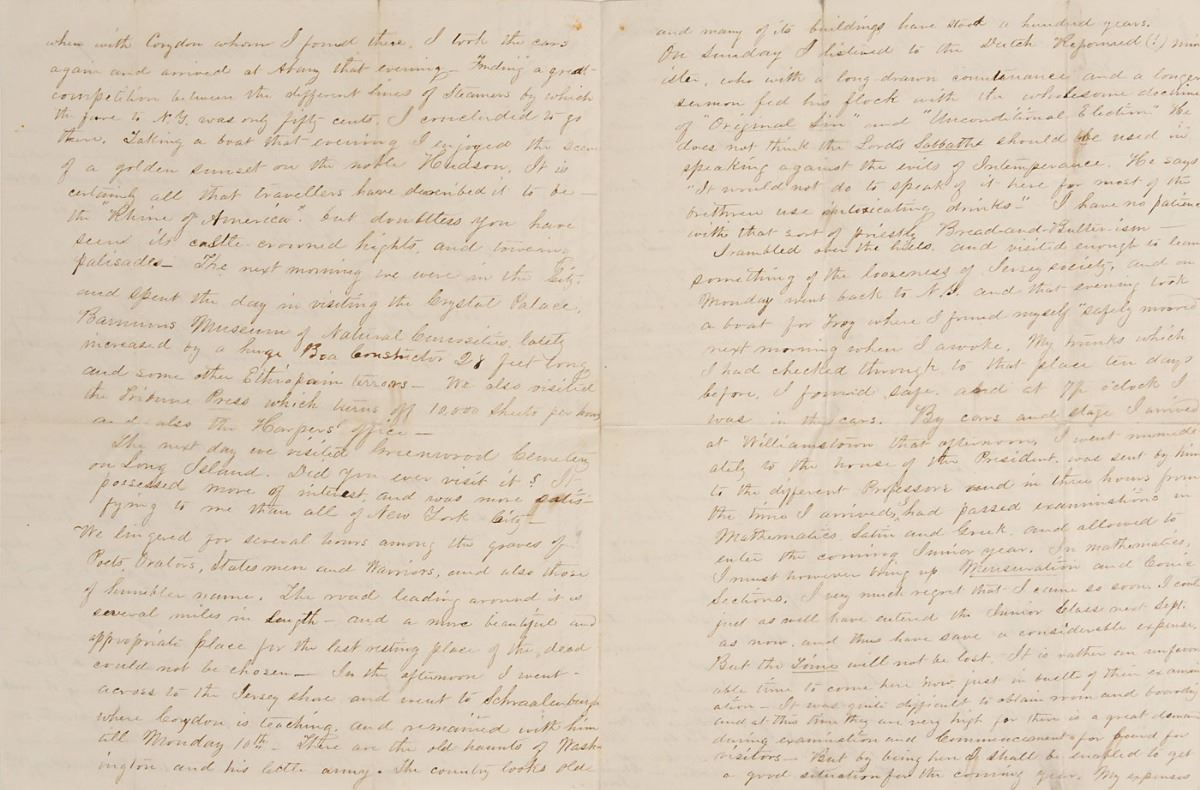 when with Corydon whom I found there. I took the cars
again and arrived at Albany that evening – Finding a great
competition between the different lines of Steamers by which
the fare to N.Y. was only fifty cents, I concluded to go
there. Taking a boat that evening I enjoyed the scene
of a golden sunset on the noble Hudson. It is
certainly all that travellers have described it to be –
the "Rhine of America". but doubtless you have
seen its castle-crowned hights, and towering
palisades – The next morning we were in the City.
and spent the day in visiting the Crystal Palace,
Barnums Museum of Natural Curiosities, lately
increased by a huge Boa Constrictor 28 feet long
and some other Ethiopian terrors – We also visited
the Tribune Press which turns off 10,000 sheets per hour
and also the Harpers' office –
The next day we visited Greenwood Cemetery
on Long Island. Did you ever visit it? It
possessed more of interest, and was more satis-
fying to me than all of New York City –
We lingered for several hours among the graves of
Poets, Orators, Statesmen and Warriors, and also those
of humbler name. The road leading around it is
several miles in length – and a more beautiful and
appropriate place for the last resting place of the dead
could not be chosen – In the afternoon I went
across to the Jersey shore and went to Schraalenburgh
where Corydon is teaching and remained with him
till Monday 10th – There are the old haunts of Wash-
ington and his little army. The country looks old
and many of its buildings have stood a hundred years.
On Sunday I listened to the Dutch Reformed (!) min
ister, who with a long drawn countenance and a longer
sermon fed his flock with the wholesome doctrine
of "Original Sin" and "Unconditional Election" He
does not think the Lord's Sabbaths should be used in
speaking against the evils of Intemperance. He says
"It would not do to speak of it here for most of the
brethren use intoxicating drinks" I have no patience
with that sort of priestly Bread-and-Butter-ism –
I rambled over the hills, and visited enough to learn
something of the looseness of Jersey society, and on
Monday went back to N.Y. and that evening took
a boat for Troy where I found myself "safely moored
next morning when I awoke. My trunks which
I had checked through to that place ten days
before, I found safe, and at 7½ o'clock I
was in the cars. By cars and stage I arrived
at Williamstown that afternoon, I went immedi
ately to the house of the President, was sent by him
to the different Professors and in three hours from
the time I arrived, had passed examinations in
Mathematics, Latin and Greek, and allowed to
enter the coming Junior year. In mathematics,
I must however bring up Mensuration and Conic
Sections. I very much regret that I came so soon, I could
just as well have entered the Junior Class next Sept.
as now, and thus have save a considerable expense.
But the Time will not be lost. It is rather an unfavor
able time to come here now just in bustle of their examin
ation – It was quite difficult to obtain room and board,
and at this time they are very high for there is a great demand
during examination and Commencement for board for
visitors – But by being here I shall be enabled to get
a good situation for the coming year. My expenses